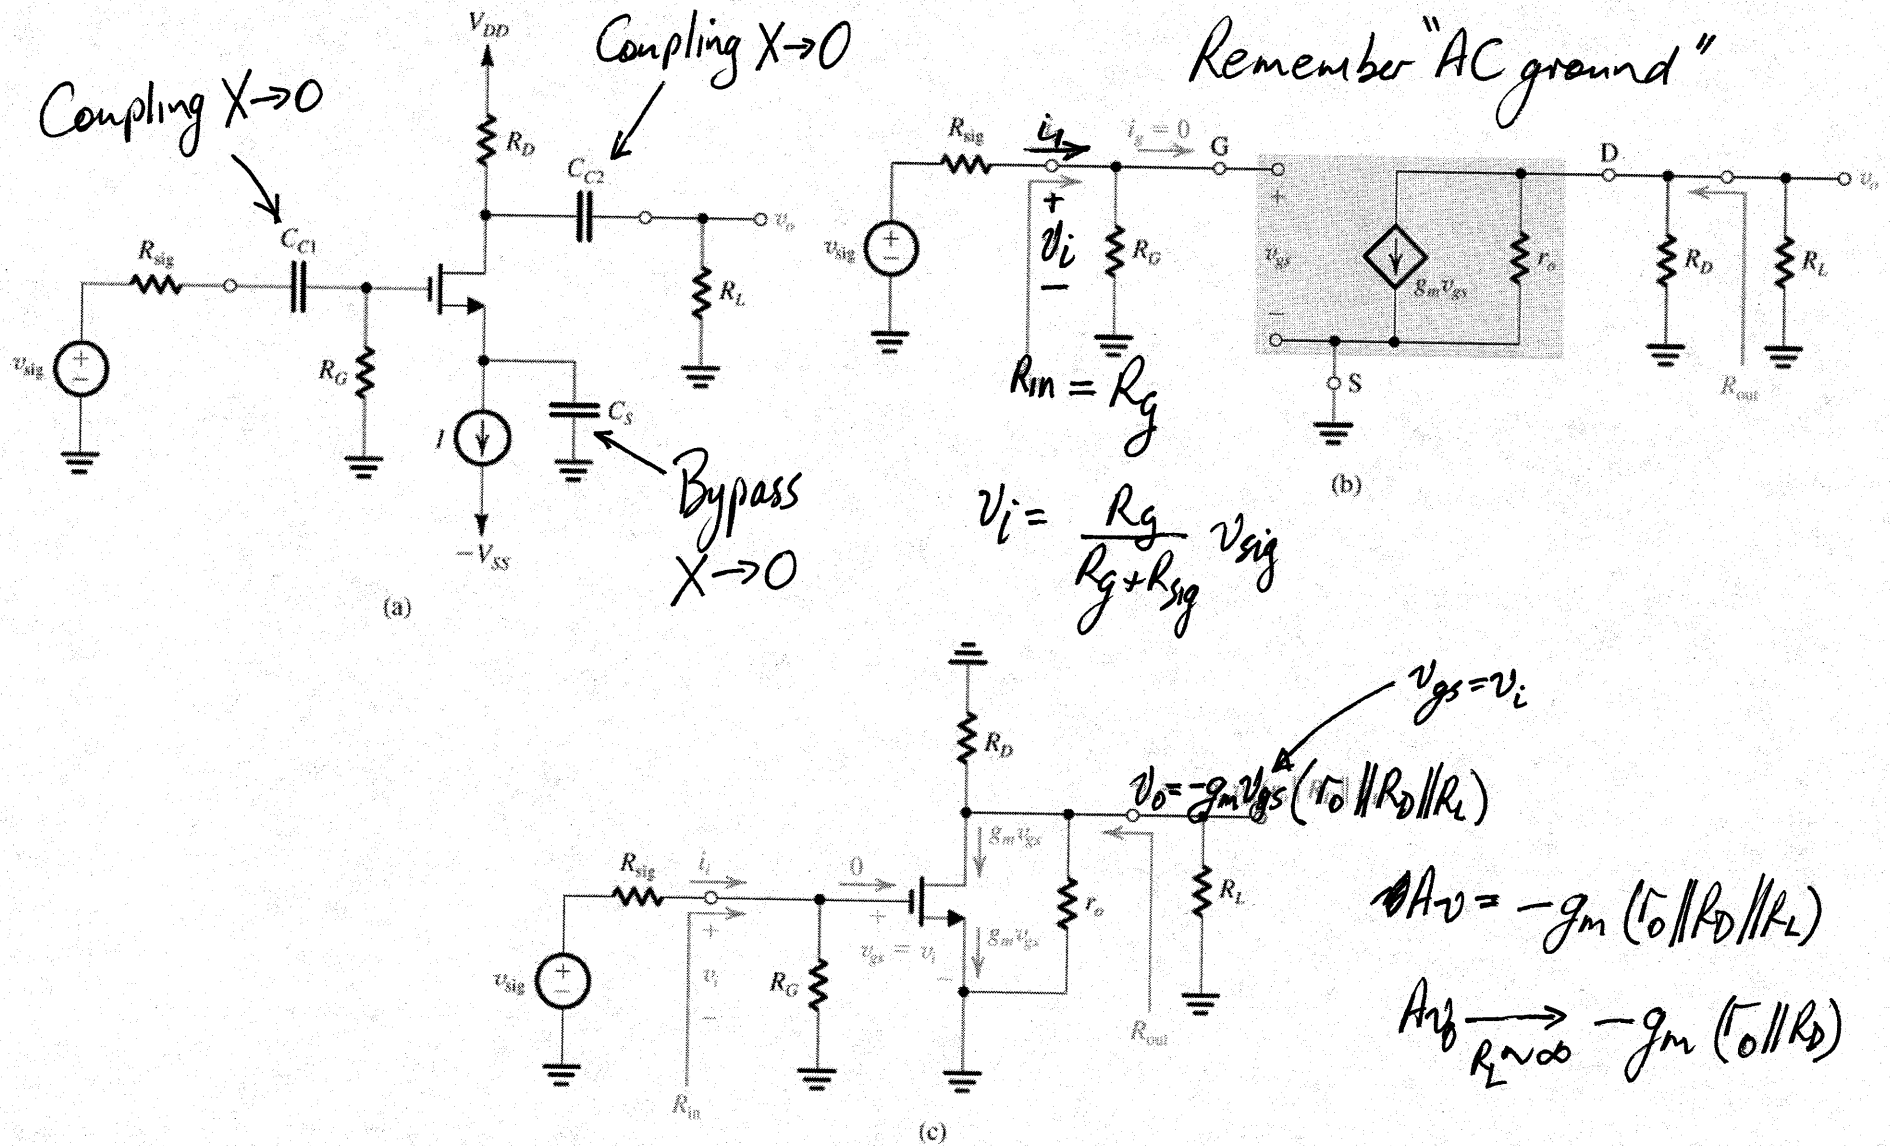 Coupling X→0
V_DD
R_D
Coupling X→0
C_C2
v_o
R_L
C_C1
R_sig
v_sig
+
−
R_G
I
C_S
Bypass
X→0
−V_SS
(a)
Remember "AC ground"
R_sig
i_i
i_g = 0
G
v_sig
+
−
+
v_i
−
R_G
+
v_gs
−
g_m v_gs
r_o
D
R_D
R_L
v_o
R_out
S
R_in = R_g
(b)
v_i = R_g / (R_g + R_sig) v_sig
v_gs = v_i
R_D
v_o = −g_m v_gs (r_o || R_D || R_L)
g_m v_gs
R_sig
i_i
0
r_o
R_L
+
v_gs = v_i
−
g_m v_gs
v_sig
+
−
+
v_i
−
R_G
R_out
R_in
(c)
A_v = −g_m (r_o || R_D || R_L)
A_vo → −g_m (r_o || R_D)
R_L ~ ∞